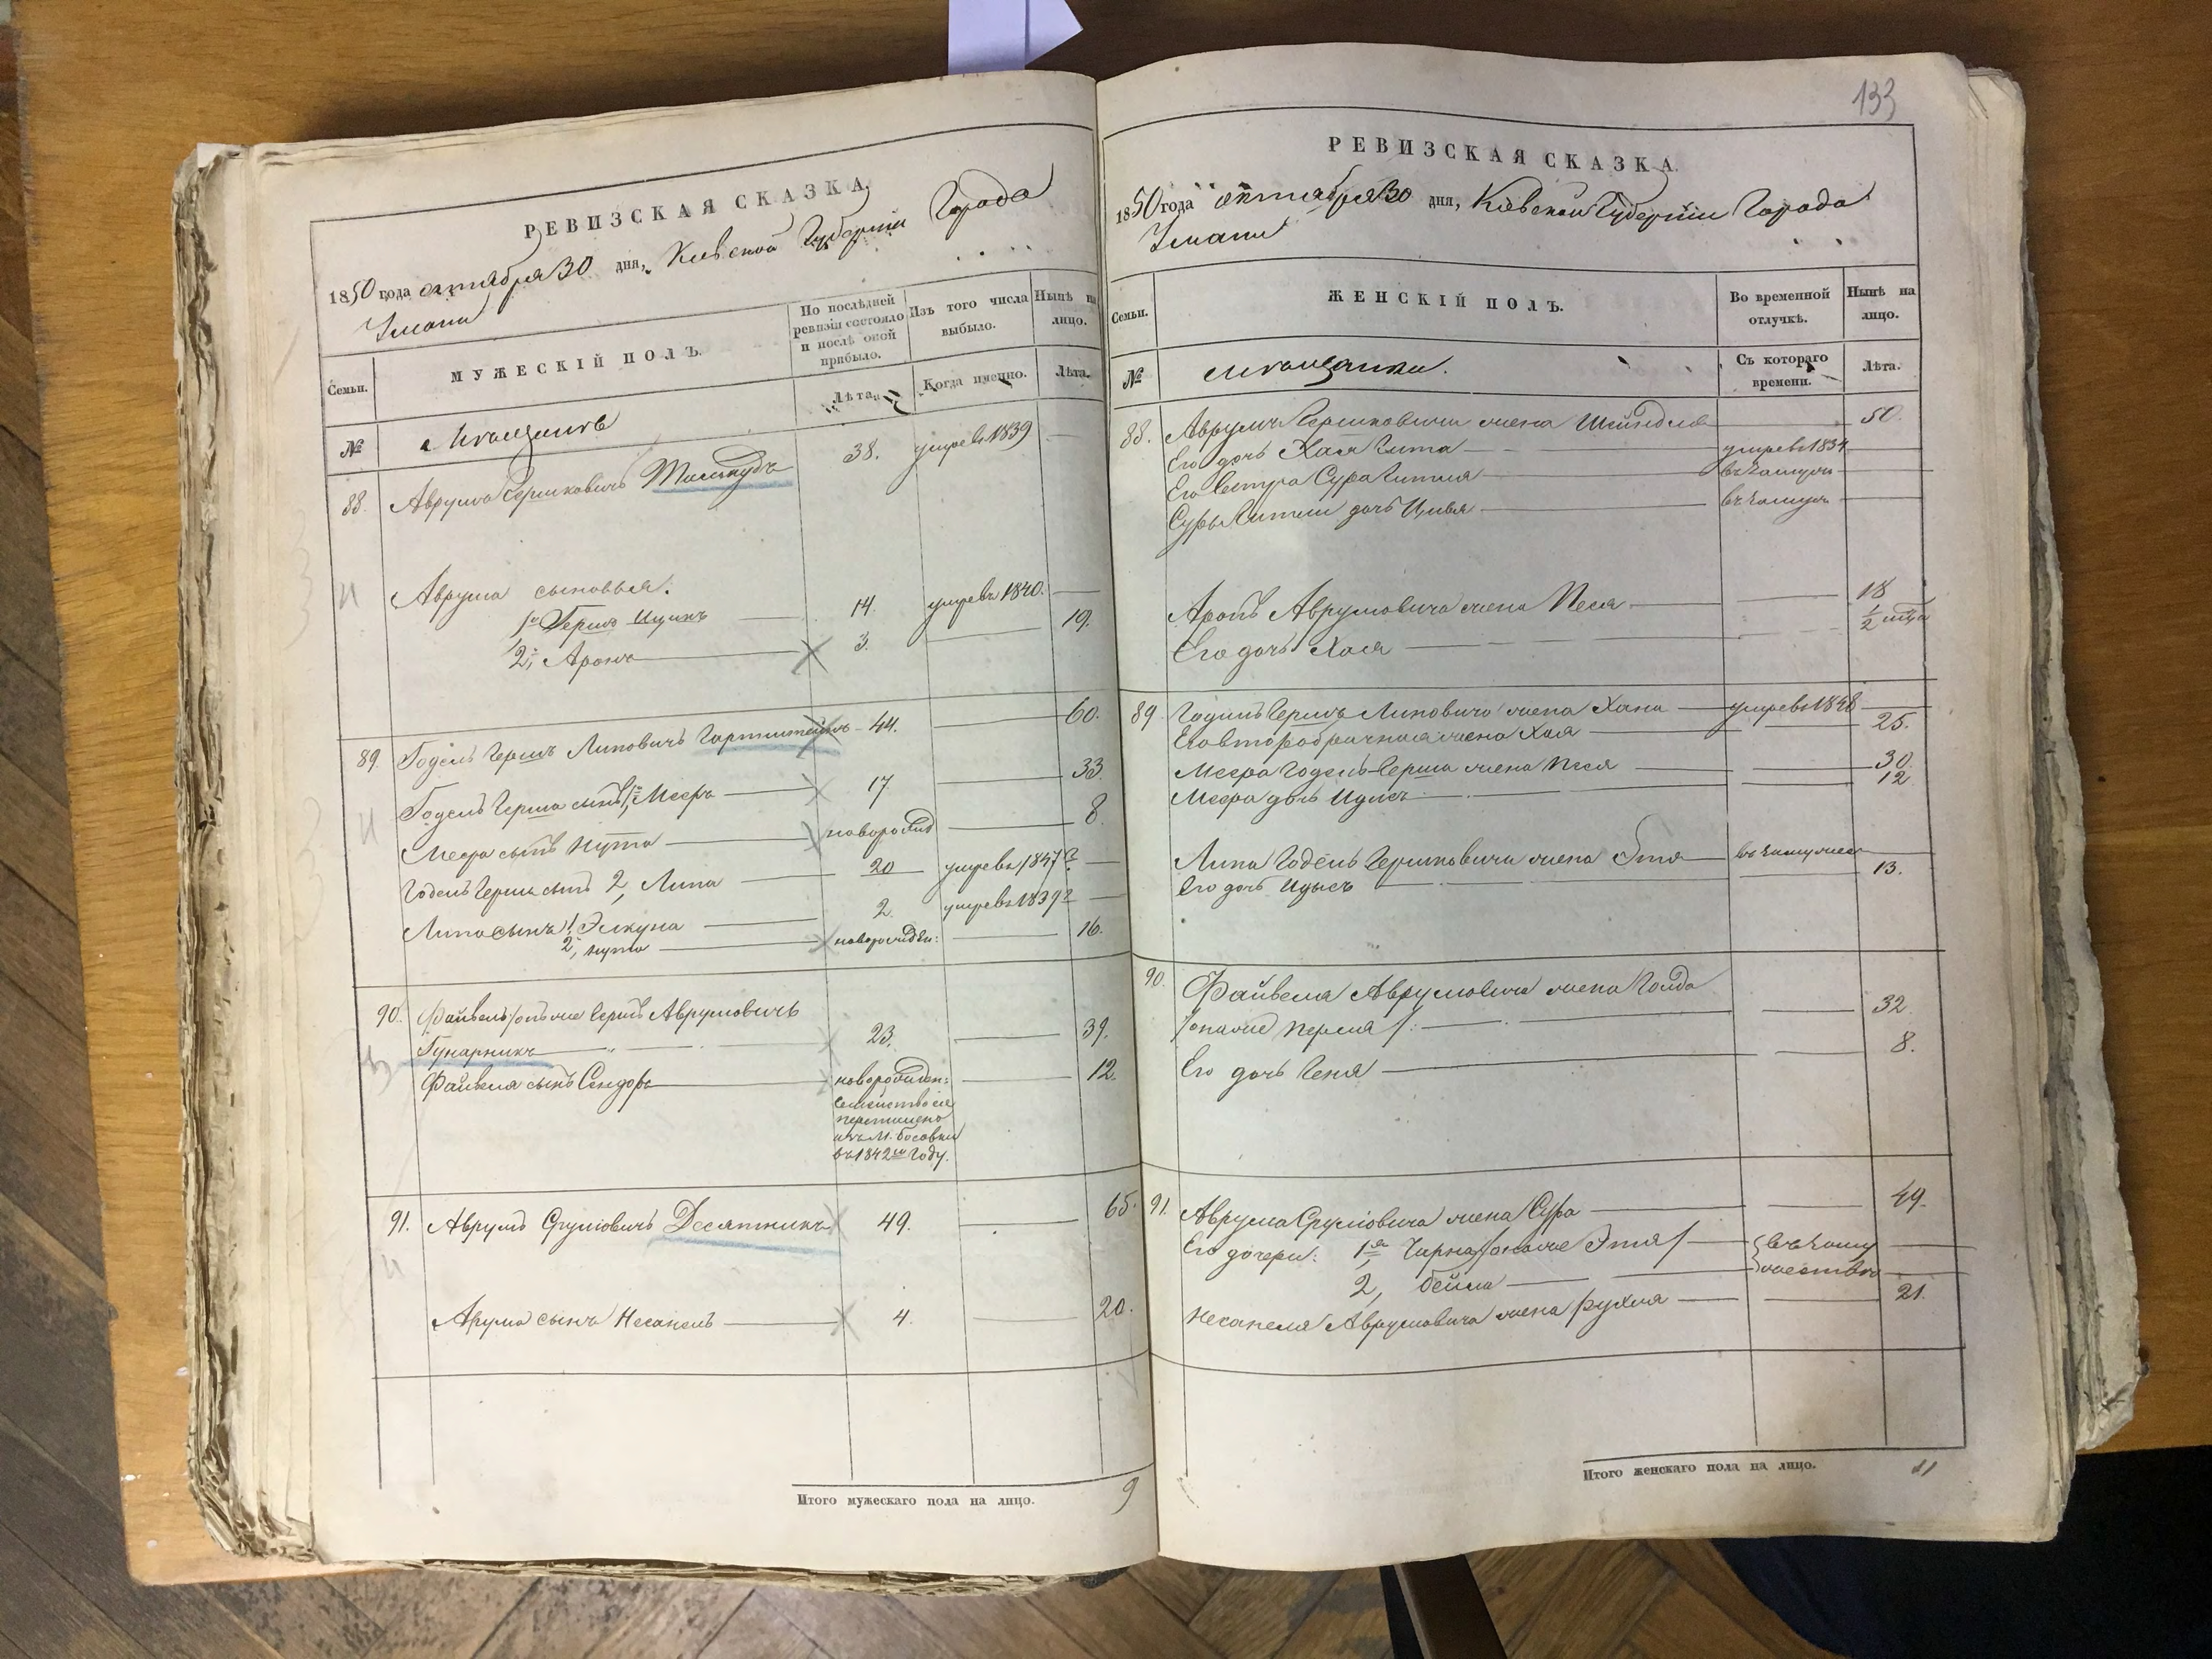 РЕВИЗСКАЯ СКАЗКА
1850 года октября 30 дня, Кіевской Губерніи Города
Умани
Семьи.
МУЖЕСКІЙ ПОЛЪ.
По послѣдней ревизіи состояло и послѣ оной прибыло.
Изъ того числа выбыло.
Нынѣ на лицо.
№
Мѣщанъ
Лѣта.
Когда именно.
Лѣта.
88. Аврумъ Гершковичъ 38. умре въ 1839
Аврума сыновья:
1й Гершъ Ицикъ 14. умре въ 1840.
2, Аронъ 3. 19.
89. Годель Гершъ Липовичъ 44. 60.
Годель Герша сынъ 1й Меерь 17. 33.
Меера сынъ Нута новорожд 8.
Годель Герша сынъ 2, Липа 20 умре въ 1847
Липа сынъ 1, Элкуна 2. умре въ 1839
2, Нута новорожден: 16.
90. Файвель /онъ же Гершъ Аврумовичъ
Гунарникъ 23. 39.
Файвеля сынъ Сендорь новорожден: 12.
семейство сіе
перечислено
изъ М. Босовки
въ 1842мъ Году.
91. Аврумъ Срулiовичъ Десятникъ 49. 65.
Аврума сынъ Несанель 4. 20.
Итого мужескаго пола на лицо. 9
133
РЕВИЗСКАЯ СКАЗКА
1850 года октября 30 дня, Кіевской Губерніи Города
Умани
Семьи.
ЖЕНСКІЙ ПОЛЪ.
Во временной отлучкѣ.
Нынѣ на лицо.
№
Мѣщанки.
Съ котораго времени.
Лѣта.
88. Аврума Гершковича жена Шейндля 50.
Его дочь Хая Гитта умре въ 1834
Его сестра Сура Гитля въ замуж
Суры Гитли дочь Цивья въ замуж
Аронъ Аврумовича жена Песя 18
Его дочь Хая 1/2
89 Годель Гершъ Липовича жена Хана умре въ 1848
Его второбрачная жена Хая 25.
Меера Годель Герша жена Песя 30.
Меера дочь Идысь 12
Липа Годель Гершковича жена Этя въ замуже
Его дочь Идысь 13.
90. Файвеля Аврумовича жена Голда
/она же Перля/: 32.
Его дочь Геня 8.
91. Аврума Срулiовича жена Сура 49.
Его дочери: 1я Чарна /она же Этя/ въ заму
2, Бейла жествѣ
Несанеля Аврумовича жена Рухля 21.
Итого женскаго пола на лицо. 11